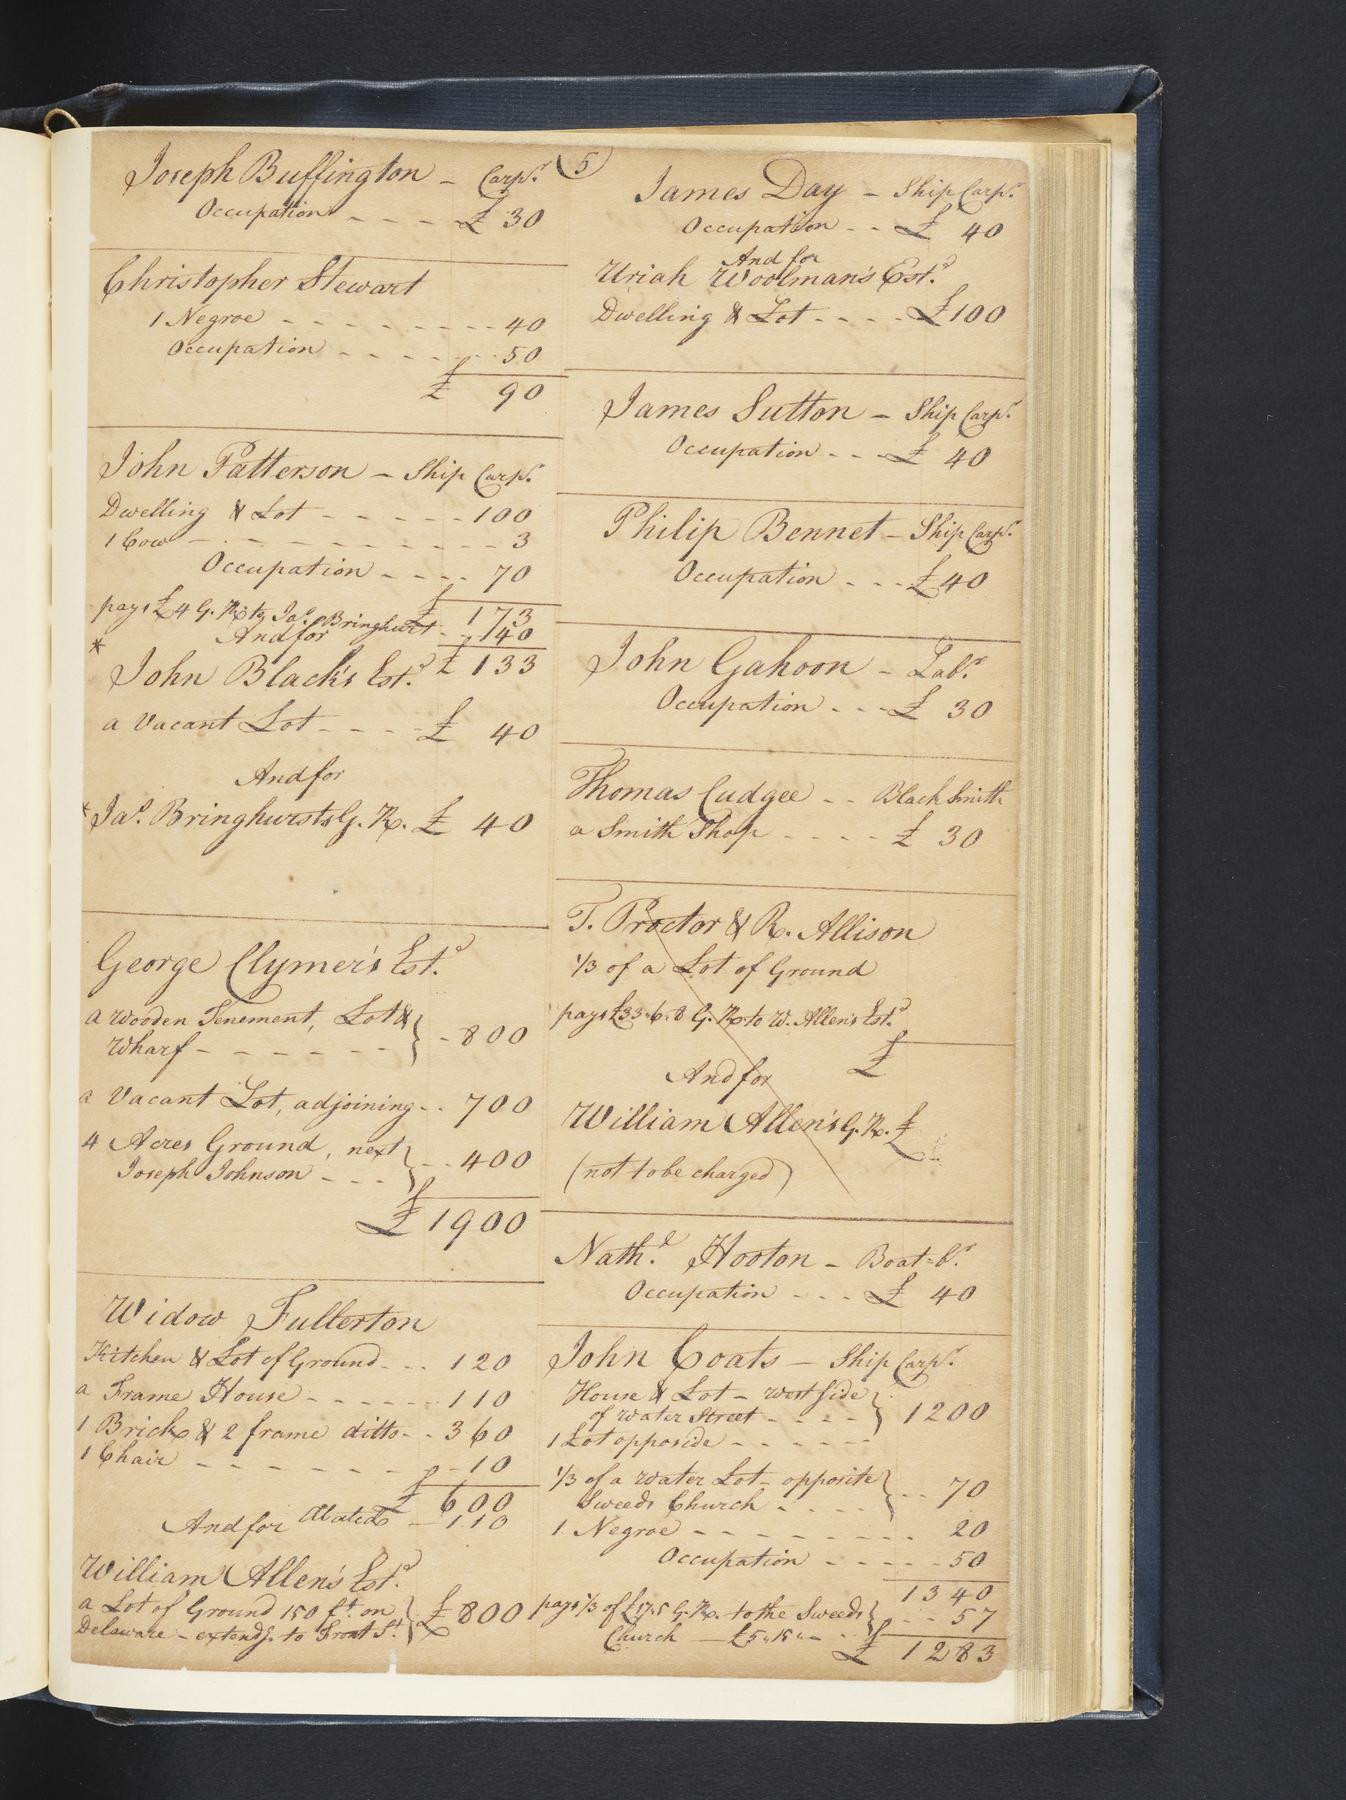 (5)
Joseph Buffington - Carpr.
Occupation - - - - £ 30
Christopher Stewart
1 Negroe - - - - - - - - - 40
Occupation - - - - - - - 50
£ 90
John Patterson - Ship Carpr.
Dwelling & Lot - - - - - - 100
1 Cow - - - - - - - - - - - 3
Occupation - - - - 70
pays £4 G. Rt. to Jas. Bringhurst £ 173
And for - - 40
* John Black's Estd. £ 133
a Vacant Lot - - - - £ 40
And for
* Jas. Bringhursts G. R. £ 40
George Clymer's Estd.
a Wooden Tenement, Lot &
Wharf - - - - - - - - 800
a Vacant Lot, adjoining - - 700
4 Acres Ground, next
Joseph Johnson - - - - - 400
£ 1900
Widow Fullerton
Kitchen & Lot of Ground - - - 120
a Frame House - - - - - - 110
1 Brick & 2 frame ditto - - 360
1 Chair - - - - - - - - - 10
£ 600
And for Abated - 110
William Allen's Estd.
a Lot of Ground 150 ft. on
Delaware - extendg. to Front St. £800
James Day - Ship Carpr.
Occupation - - £ 40
And for
Uriah Woolman's Estd.
Dwelling & Lot - - - - £100
James Sutton - Ship Carpr.
Occupation - - - £ 40
Philip Bennet - Ship Carpr.
Occupation - - - £40
John Gahoon - Labr.
Occupation - - - £ 30
Thomas Cudgee - - Black Smith
a Smith Shop - - - - - £ 30
T. Proctor & R. Allison
1/3 of a Lot of Ground
pays £33.6.8 G. R. to W. Allen's Estd.
£
And for
William Allen's G. R. £
(not to be charged)
Nathl. Hooton - Boat=br.
Occupation - - - £ 40
John Coats - Ship Carpr.
House & Lot - west side
of Water Street - - - - 1200
1 Lot opposide - - - - - -
1/3 of a Water Lot - opposite
Sweeds Church - - - - - - 70
1 Negroe - - - - - - - - 20
Occupation - - - - - 50
1340
pays 1/3 of £17.5 G. R. to the Sweeds
Church - £5"15"- - - - 57
£ 1283